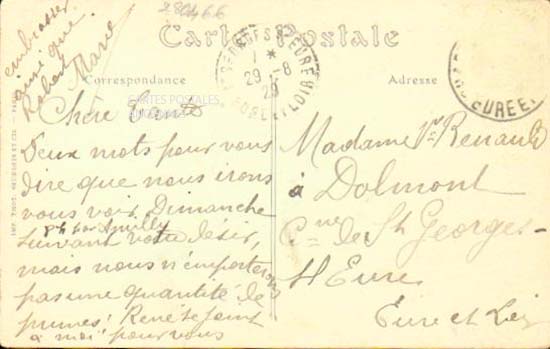 280466
Carte Postale
Correspondance
Adresse
ST GEORGES S EURE
1 *
29 -8
29
EURE ET LOIR
EURE ET
CARTES POSTALES
IMP. THOS.
Chère Tante
Deux mots pour vous
dire que nous irons
vous voir Dimanche
suivant votre désir,
mais nous n'emporterons
pas une quantité de
prunes. René se joint
à moi pour vous
embrasser
ainsi que
Robert
Marie
Madame Vve Renault
à Dolmont
Cne de St Georges-
s/ Eure
Eure et Loir